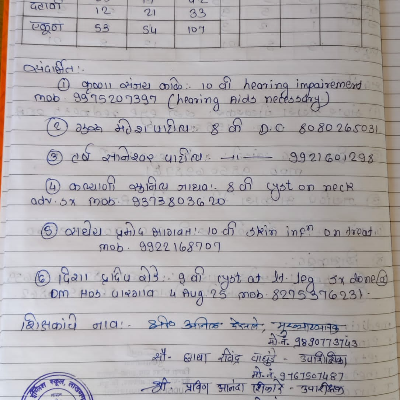 दहावी 12 21 33
एकूण 53 54 107
संदर्भित:-
① कृष्णा संजय काळे:- 10 वी hearing impairement
mob 9975207397 (hearing Aids necessary)
② महेश पाटील:- 8 वी D.C 8080265031
③ हर्ष ज्ञानेश्वर पाटील:- —〃— 9921601298
④ कल्याणी सुनिल जाधव:- 8 वी cyst on neck
adv. sx mob 9373803620
⑤ प्रमोद 10 वी skin infn on treat.
mob. 9922168707
⑥ दिशा प्रदिप बोडे:- 9 वी cyst at lt. leg sx done
DM Hos. 4 Aug 25 mob 8275376231.
शिक्षकांचे नाव:- श्री. अनिल मुख्याध्यापक
मो.नं. 9890773743
सौ- छाया रविंद्र - उपशिक्षिका
मो.नं. 9767507487
श्री आनंदा - उपशिक्षक